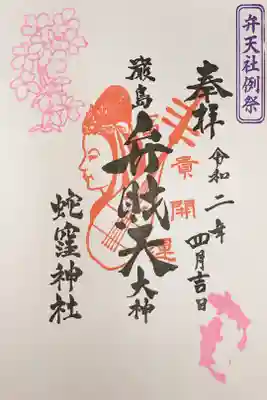 弁天社例祭
奉拝
令和二年四月吉日
厳島弁財天大神
開運
蛇窪神社